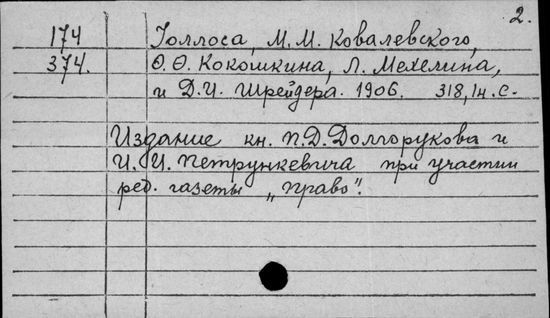 2.
174 Іоллоса, М.М. Ковалевского,
374. Ѳ.Ѳ. Кокошкина, Л. Мехелина,
и Д.И. Шрейдера. 1906. 318, 1н. с.
Издание кн. П.Д. Долгорукова и
И.И. Петрункевича при участии
ред. газеты „Право".